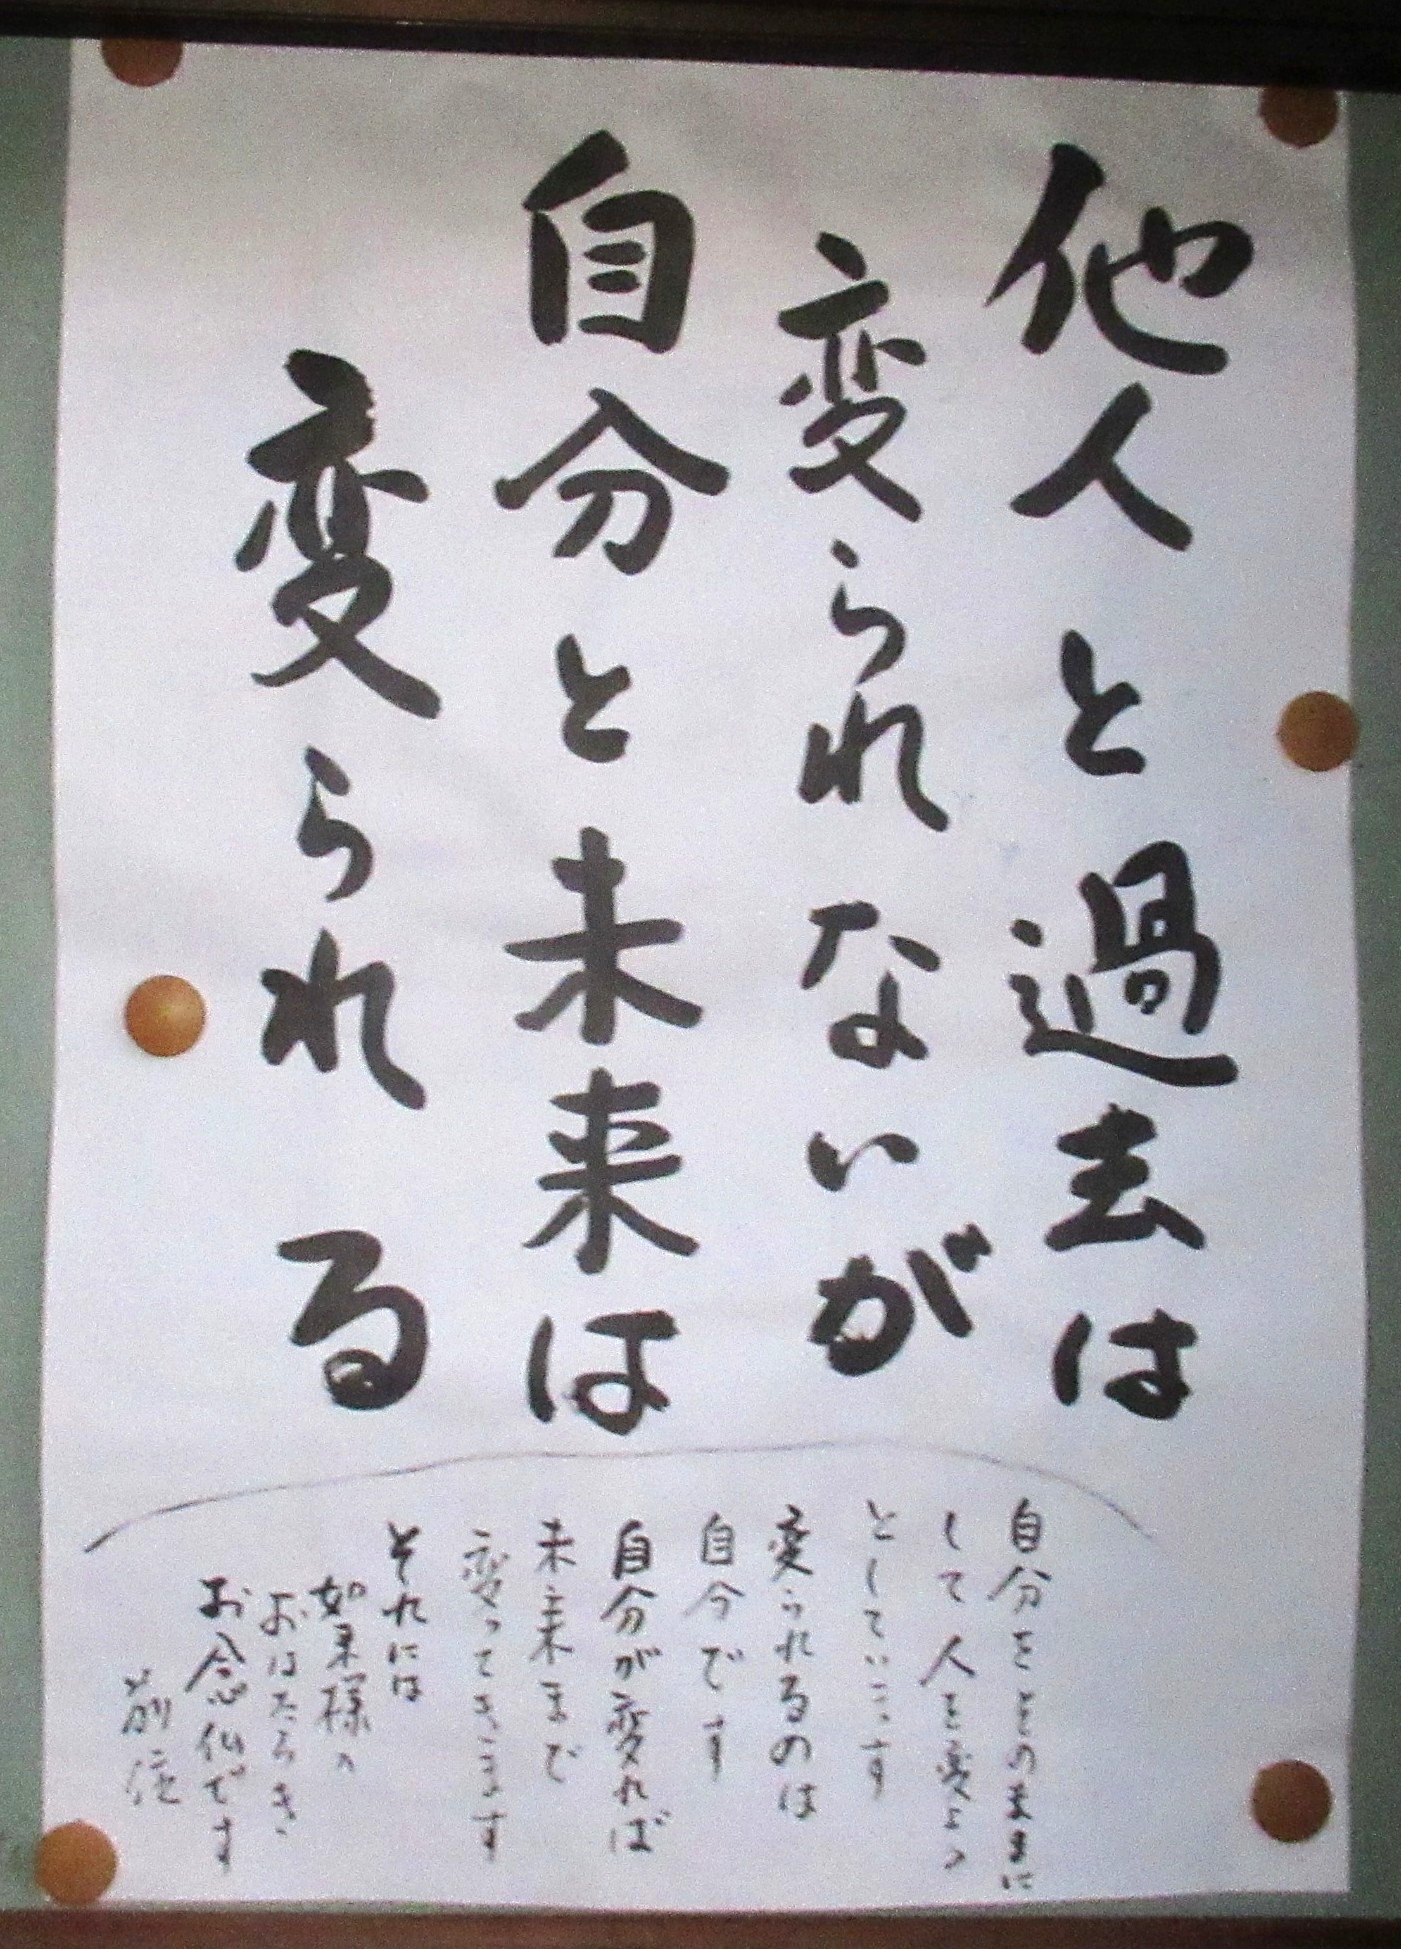 他人と過去は
変られないが
自分と未来は
変られる
自分をそのままに
して人を変よう
としています
変られるのは
自分です
自分が変れば
未来まで
変ってきます
それには
如来様の
おはたらき
お念仏です
前住